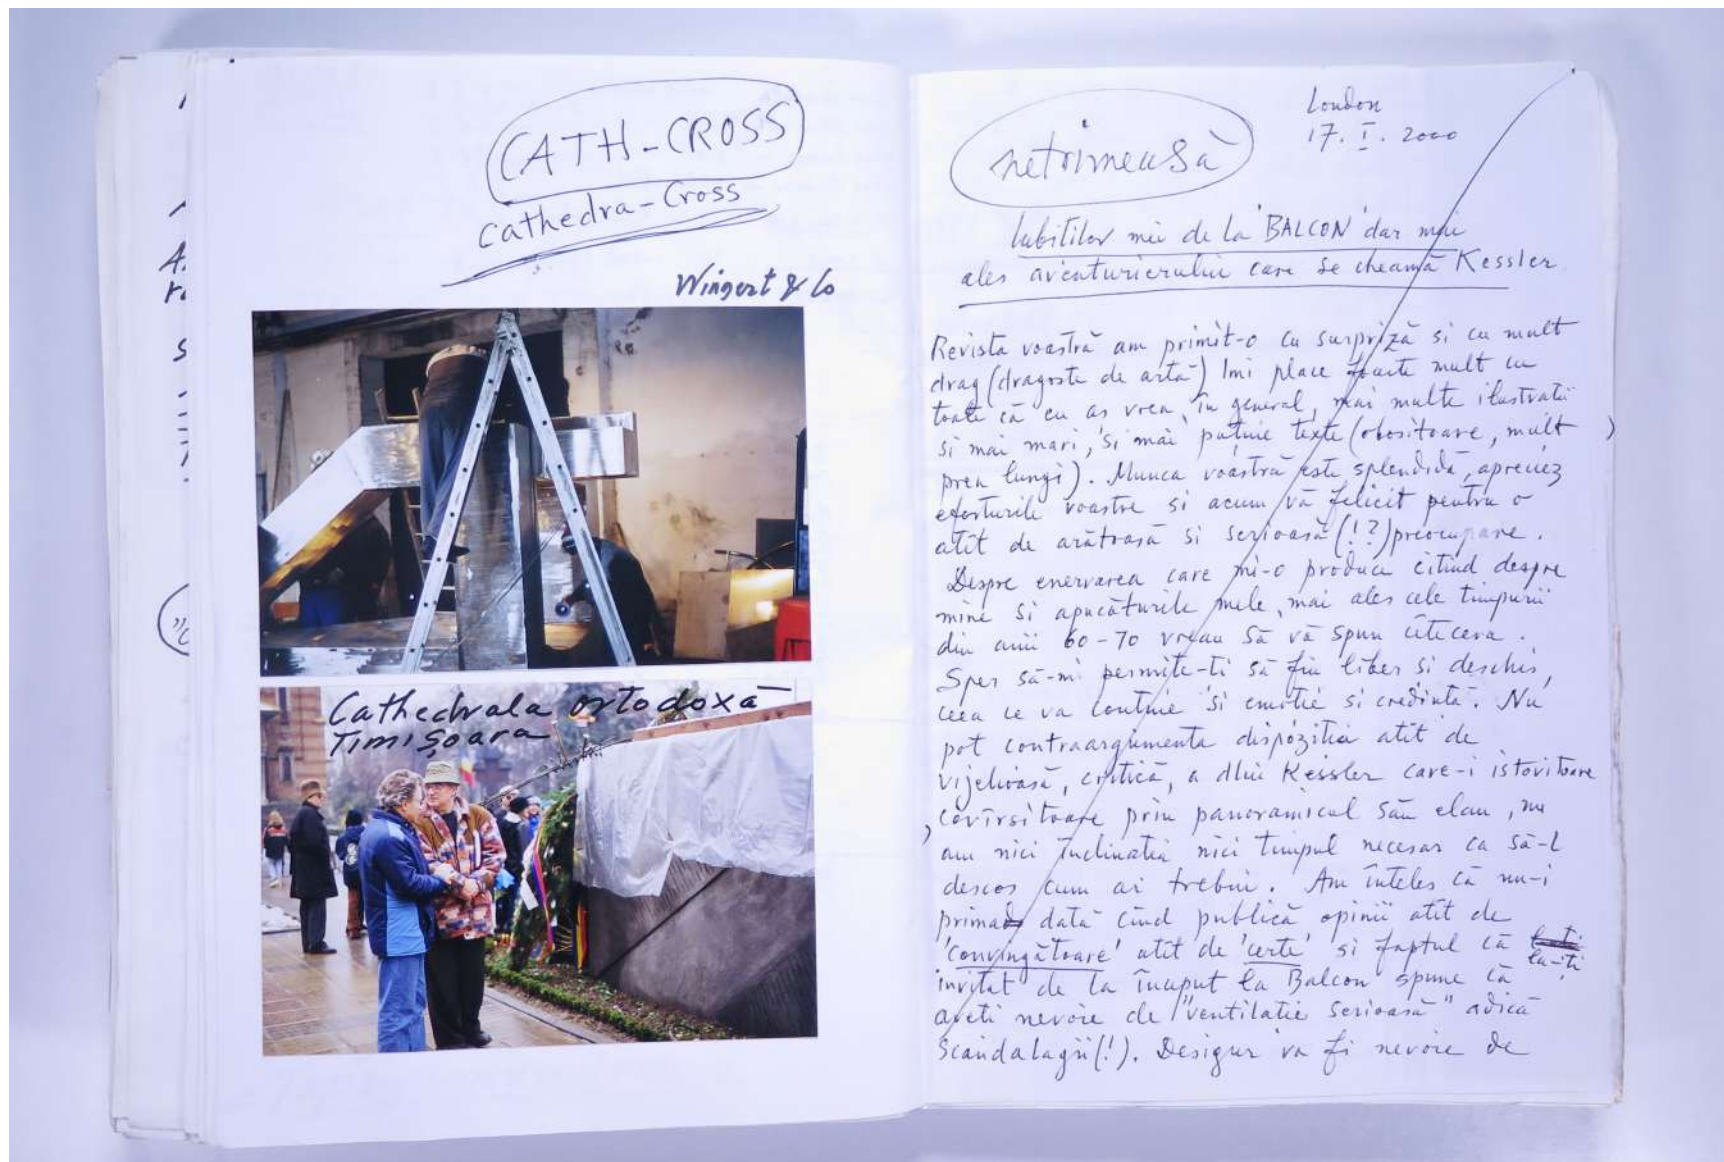 CATH-CROSS
Cathedra-Cross
Wingert & Co
Cathedrala ortodoxă
Timișoara
netrimeasă
London
17. I. 2000
Iubitilor mei de la 'BALCON' dar mai
ales aventurierului care se cheamă Kessler
Revista voastră am primit-o cu surpriză si cu mult
drag (dragoste de artă) Imi place foarte mult cu
toate că eu as vrea, în general, mai multe ilustratii
si mai mari, si mai putine texte (obositoare, mult
prea lungi). Munca voastră este splendidă, apreciez
eforturile voastre si acum vă felicit pentru o
atît de arătoasă si serioasă (!?) preocupare.
Despre enervarea care mi-o produce citind despre
mine si apucăturile mele, mai ales cele timpurii
din anii 60-70 vreau să vă spun cîte ceva.
Sper să-mi permite-ti să fiu liber si deschis,
ceea ce va contine si emotie si credintă. Nu
pot contraargumenta dispozitia atît de
vijelioasă, critică, a dlui Kessler care-i istovitoare
, covîrsitoare prin panoramicul său elan, nu
am nici înclinatia nici timpul necesar ca să-l
descos cum ar trebui. Am înteles că nu-i
prima dată cînd publică opinii atît de
'convingătoare' atît de 'certe' si faptul că l-ati
invitat de la început la Balcon spune că
aveti nevoie de "ventilatie serioasă" adică
Scandalagii(!). Desigur va fi nevoie de
A.
s